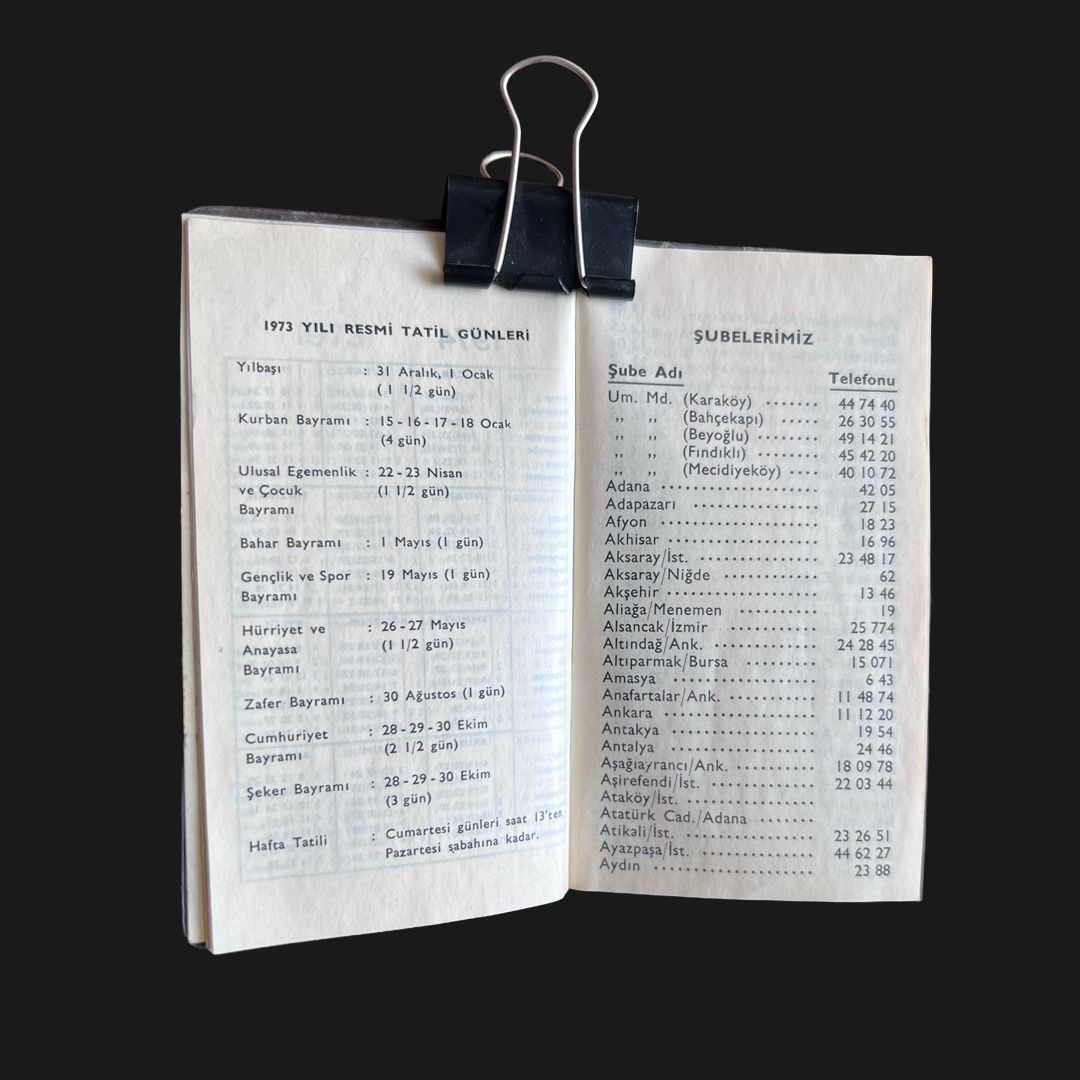 1973 YILI RESMİ TATİL GÜNLERİ
Yılbaşı : 31 Aralık, 1 Ocak
(1 1/2 gün)
Kurban Bayramı : 15-16-17-18 Ocak
(4 gün)
Ulusal Egemenlik : 22-23 Nisan
ve Çocuk (1 1/2 gün)
Bayramı
Bahar Bayramı : 1 Mayıs (1 gün)
Gençlik ve Spor : 19 Mayıs (1 gün)
Bayramı
Hürriyet ve : 26-27 Mayıs
Anayasa (1 1/2 gün)
Bayramı
Zafer Bayramı : 30 Ağustos (1 gün)
Cumhuriyet : 28-29-30 Ekim
Bayramı (2 1/2 gün)
Şeker Bayramı : 28-29-30 Ekim
(3 gün)
Hafta Tatili : Cumartesi günleri saat 13'ten
Pazartesi sabahına kadar.
ŞUBELERİMİZ
Şube Adı Telefonu
Um. Md. (Karaköy) ....... 44 74 40
,, ,, (Bahçekapı) ..... 26 30 55
,, ,, (Beyoğlu) ........ 49 14 21
,, ,, (Fındıklı) ........ 45 42 20
,, ,, (Mecidiyeköy) .... 40 10 72
Adana .................... 42 05
Adapazarı .................... 27 15
Afyon .................... 18 23
Akhisar .................... 16 96
Aksaray/İst. .................... 23 48 17
Aksaray/Niğde ............ 62
Akşehir .................... 13 46
Aliağa/Menemen .......... 19
Alsancak/İzmir ........... 25 774
Altındağ/Ank. ............... 24 28 45
Altıparmak/Bursa ........... 15 071
Amasya .................... 6 43
Anafartalar/Ank. ............ 11 48 74
Ankara .................... 11 12 20
Antakya .................... 19 54
Antalya .................... 24 46
Aşağıayrancı/Ank. ........... 18 09 78
Aşirefendi/İst. ............... 22 03 44
Ataköy/İst. ..................
Atatürk Cad./Adana .......
Atikali/İst. .................. 23 26 51
Ayazpaşa/İst. ................ 44 62 27
Aydın .................... 23 88